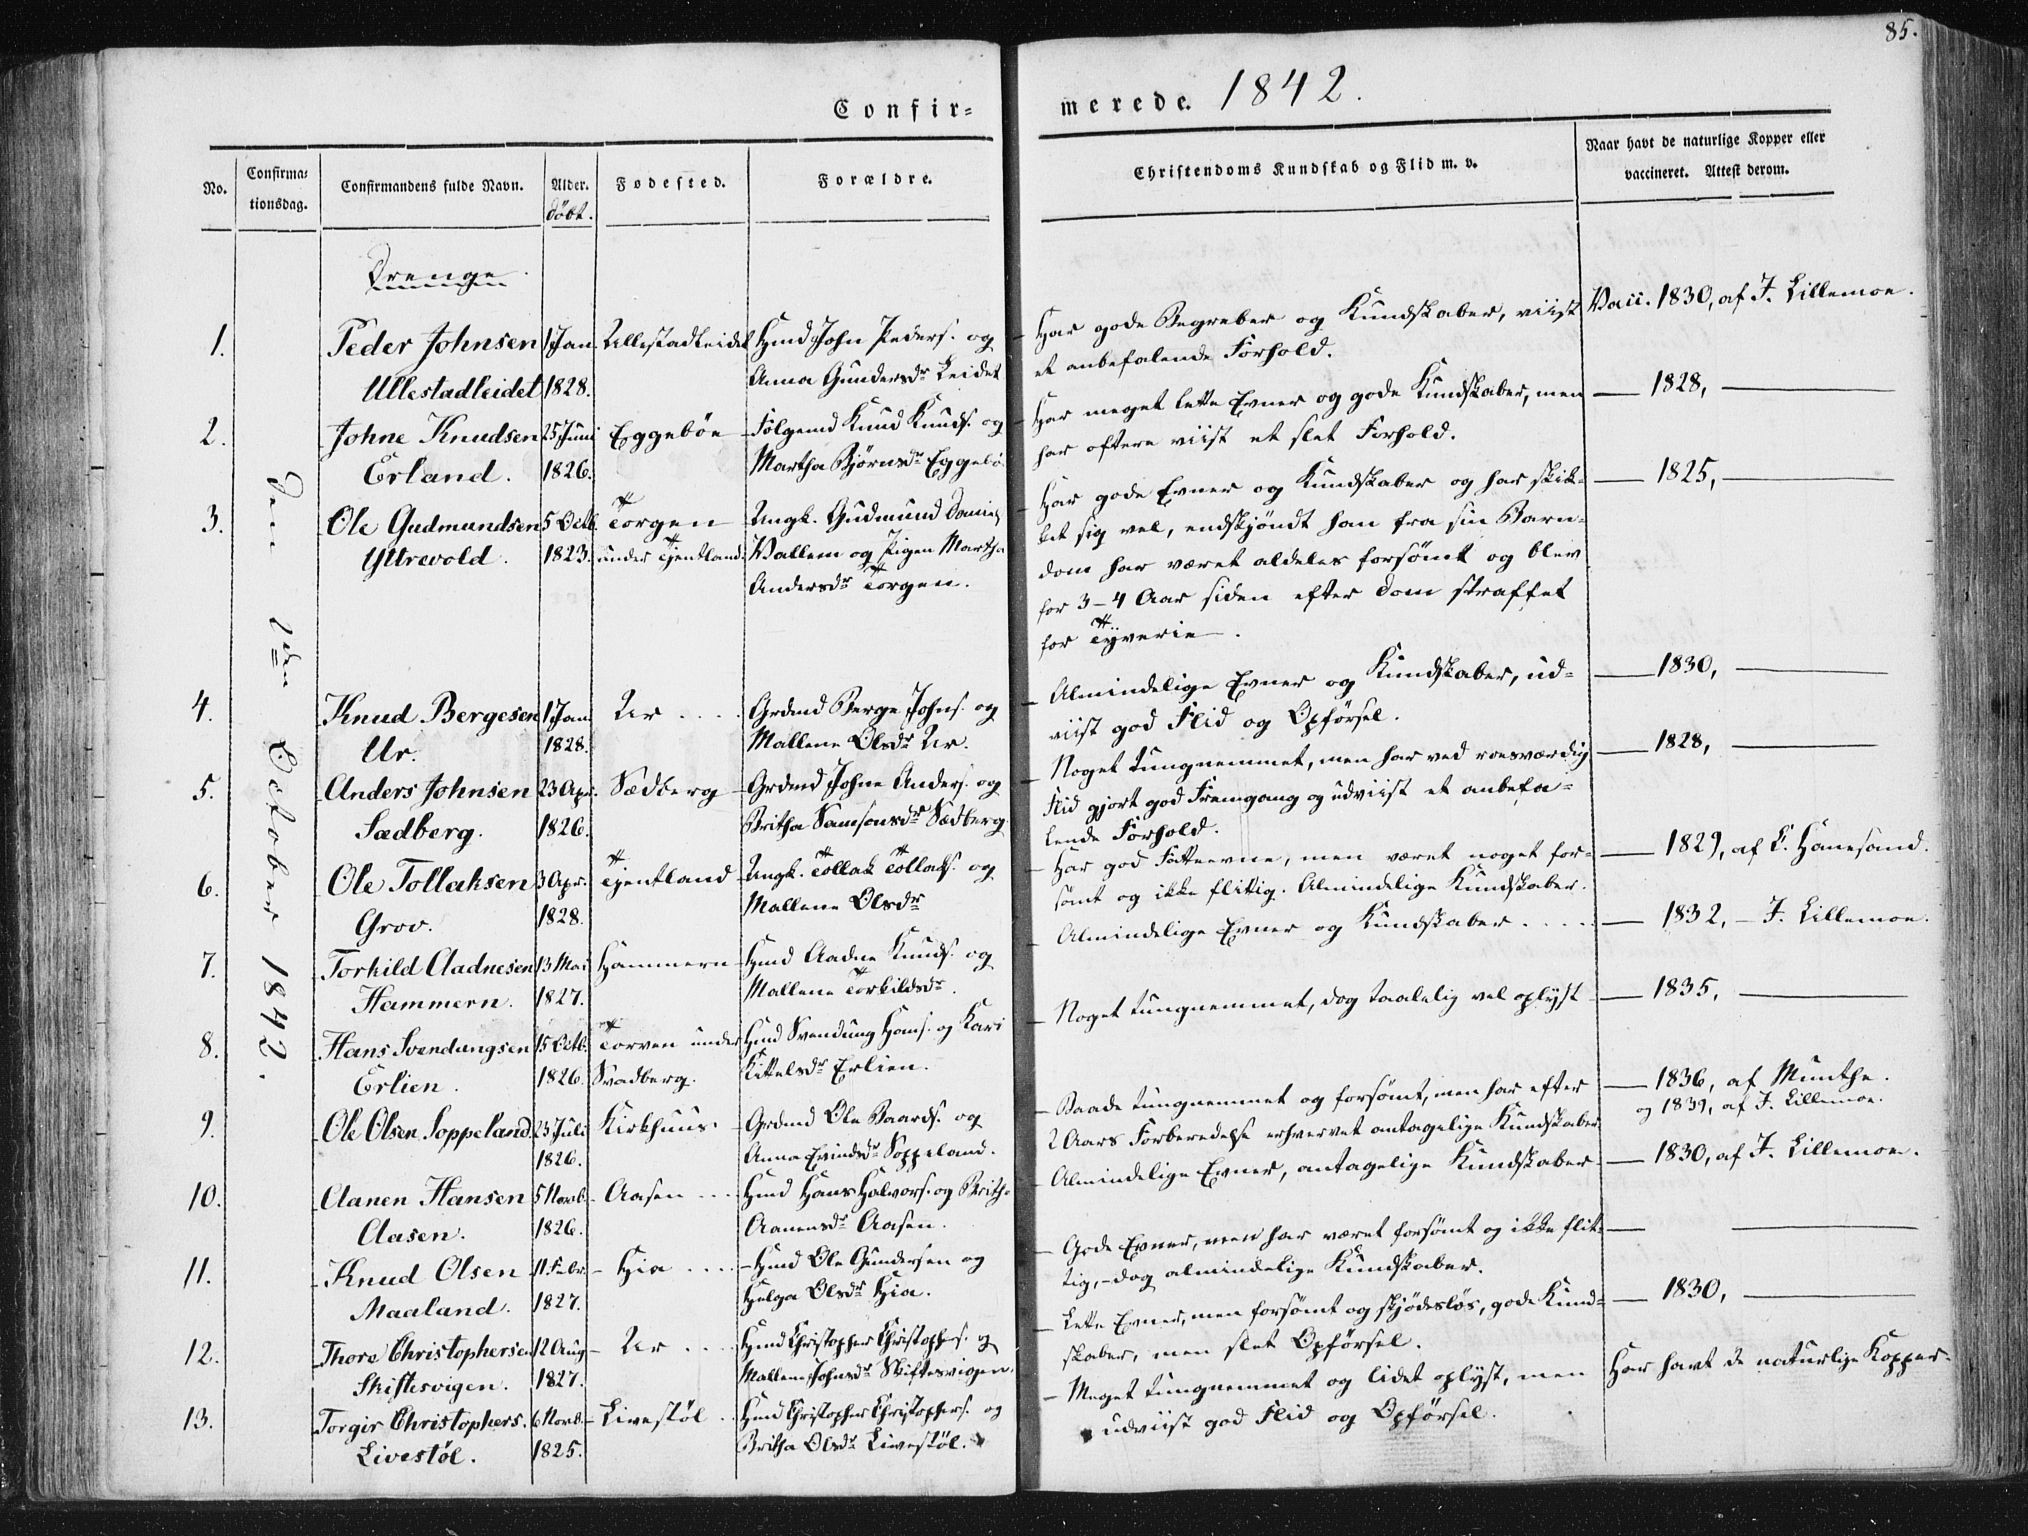 85.
Confir-
merede. 1842.
No.
Confirma-
tionsdag.
Confirmandens fulde Navn.
Alder.
döbt.
Fødested.
Forældre.
Christendoms Kundskab og Flid m. v.
Naar havt de naturlige Kopper eller
vaccineret. Attest derom.
Drenge.
den 2den October 1842.
1.
Peder Johnsen
Ullestadleidet
1 Jan
1828.
Ullestadleidet
Hmd John Peders. og
Anna Gundersdr Leidet
Har gode Begreber og Kundskaber, viist
et anbefalende Forhold.
Vacc. 1830, af J. Lillemoe.
2.
Johne Knudsen
Erland.
25 Juni
1826.
Eggebøe
Følgemd Knud Knuds. og
Martha Bjørnsdr Eggebö
Har meget lette Evner og gode Kundskaber, men
har oftere viist et slet Forhold.
— 1828, —
3.
Ole Gudmundsen
Yttrevold.
5 Octb.
1823.
Torgen
under Tjentland.
Ungk. Gudmund Daniels
Vallem og Pigen Martha
Andersdr Torgen.
Har gode Evner og Kundskaber og har skik-
ket sig vel, endskjöndt han fra sin Barn-
dom har været aldeles forsömt og blev
for 3-4 Aar siden efter Dom straffet
for Tyverie.
— 1825, —
4.
Knud Bergesen
Ur.
1 Jan
1828.
Ur ....
Grdmd Berge Johns. og
Mallene Olsdr Ur.
Almindelige Evner og Kundskaber, ud-
viist god Flid og Opförsel.
— 1830, —
5.
Anders Johnsen
Sædberg.
23 Apr.
1826.
Sædberg
Grdmd Johne Anders. og
Britha Samsonsdr Sædberg.
Noget tungnemmet, men har ved roesværdig
Flid gjort god Fremgang og udviist et anbefa-
lende Forhold.
— 1828, —
6.
Ole Tollaksen
Grov.
3 Apr.
1828.
Tjentland
Ungk. Tollak Tollaks. og
Mallene Olsdr
Har god Fatteevne, men været noget for-
sömt og ikke flittig. Almindelige Kundskaber.
— 1829, af L. Hanesand.
7.
Torkild Aadnesen
Hammern.
13 Mai
1827.
Hammern
Hmd Aadne Knuds. og
Mallene Torkildsdr.
Almindelige Evner og Kundskaber ....
— 1832, — J. Lillemoe.
8.
Hans Svendungsen
Erlien.
15 Octb.
1826.
Torven under
Svadberg.
Hmd Svendung Hans. og Kari
Kittelsdr Erlien.
Noget tungnemmet, dog taalelig vel oplyst
— 1835, —
9.
Ole Olsen Soppeland.
23 Juli
1826.
Kirkhuus.
Grdmd Ole Baards. og
Anna Evindsdr Soppeland.
Baade tungnemmet og forsömt, men har efter
2 Aars Forberedelse erhvervet antagelige Kundskaber.
— 1836, af Munthe.
og 1839, af J. Lillemoe.
10.
Aanen Hansen
Aasen.
5 Novb.
1826.
Aasen ...
Hmd Hans Halvors. og Britha
Aanensdr Aasen.
Almindelige Evner, antagelige Kundskaber
— 1830, af J. Lillemoe.
11.
Knud Olsen
Maaland.
11 Febr.
1827.
Hia ....
Hmd Ole Gundersen og
Helga Olsdr Hia.
Gode Evner, men har været forsömt og ikke flit-
tig, - dog almindelige Kundskaber.
— —
12.
Thore Christophersen
Skiftesvigen.
12 Aug
1827.
Ur ....
Hmd Christopher Christophers. og
Mallene Johnsdr Skiftesvigen.
Lette Evner, men forsömt og skjödeslös, gode Kund-
skaber, men slet Opförsel.
— 1830, —
13.
Torgir Christophers.
Livestöl.
6 Novb.
1825.
Livestöl ..
Hmd Christopher Christophers. og
Britha Olsdr Livestöl.
Meget tungnemmet og lidet oplyst, men
udviist god Flid og Opförsel.
Har havt de naturlige Kopper.